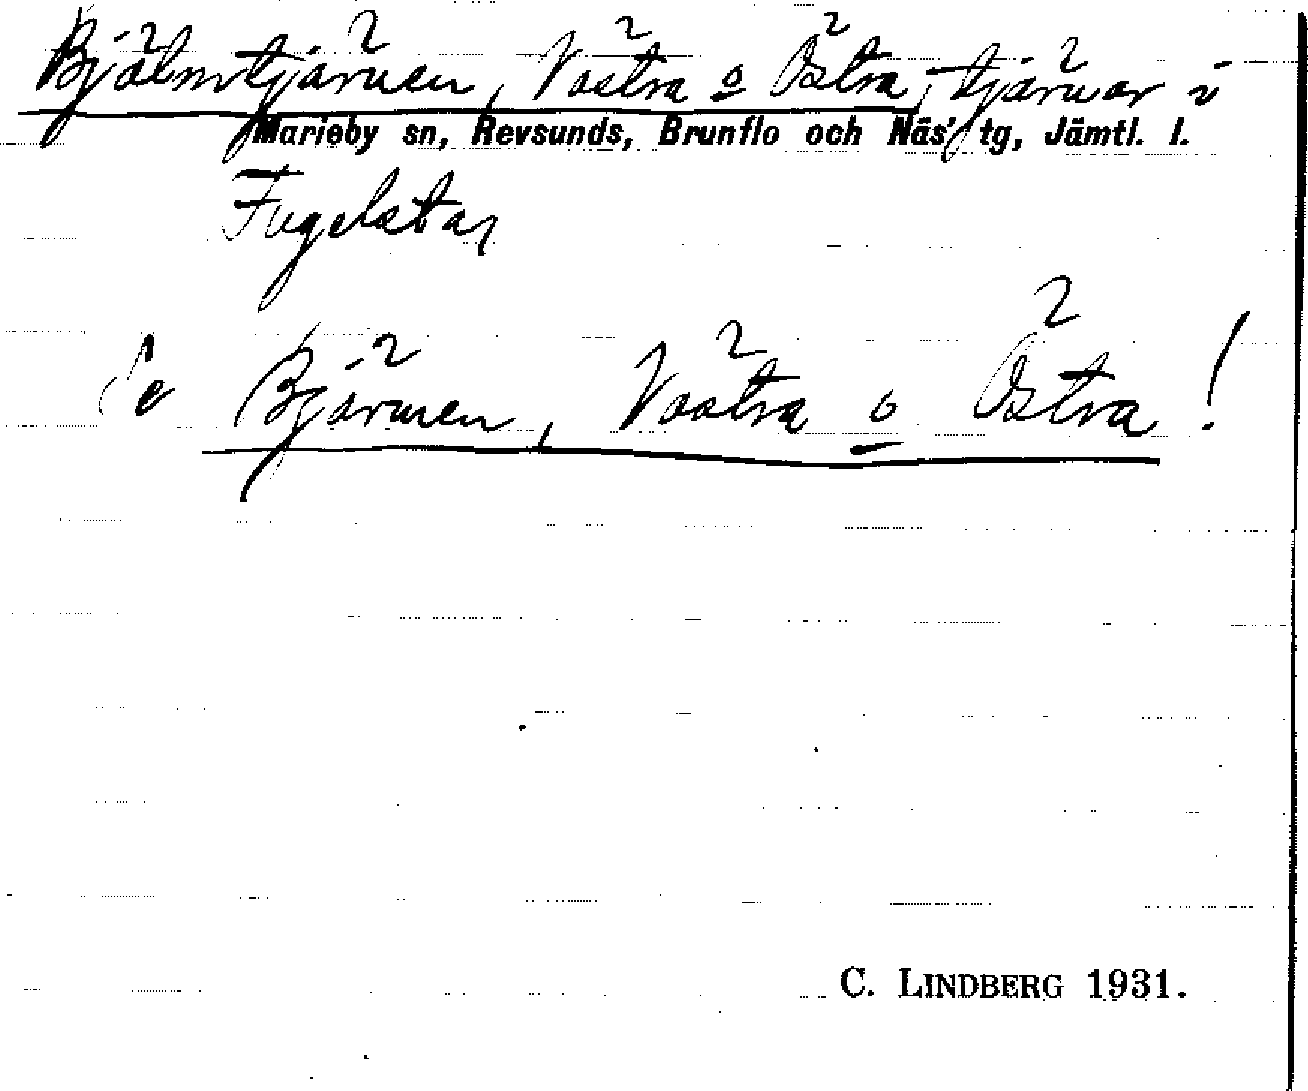 Bjälmtjärnen, Västra o Östra, tjärnar i
Marieby sn, Revsunds, Brunflo och Näs' tg, Jämtl. l.
Fugelstar
Se Bjärmen, Västra o Östra!
C. LINDBERG 1931.